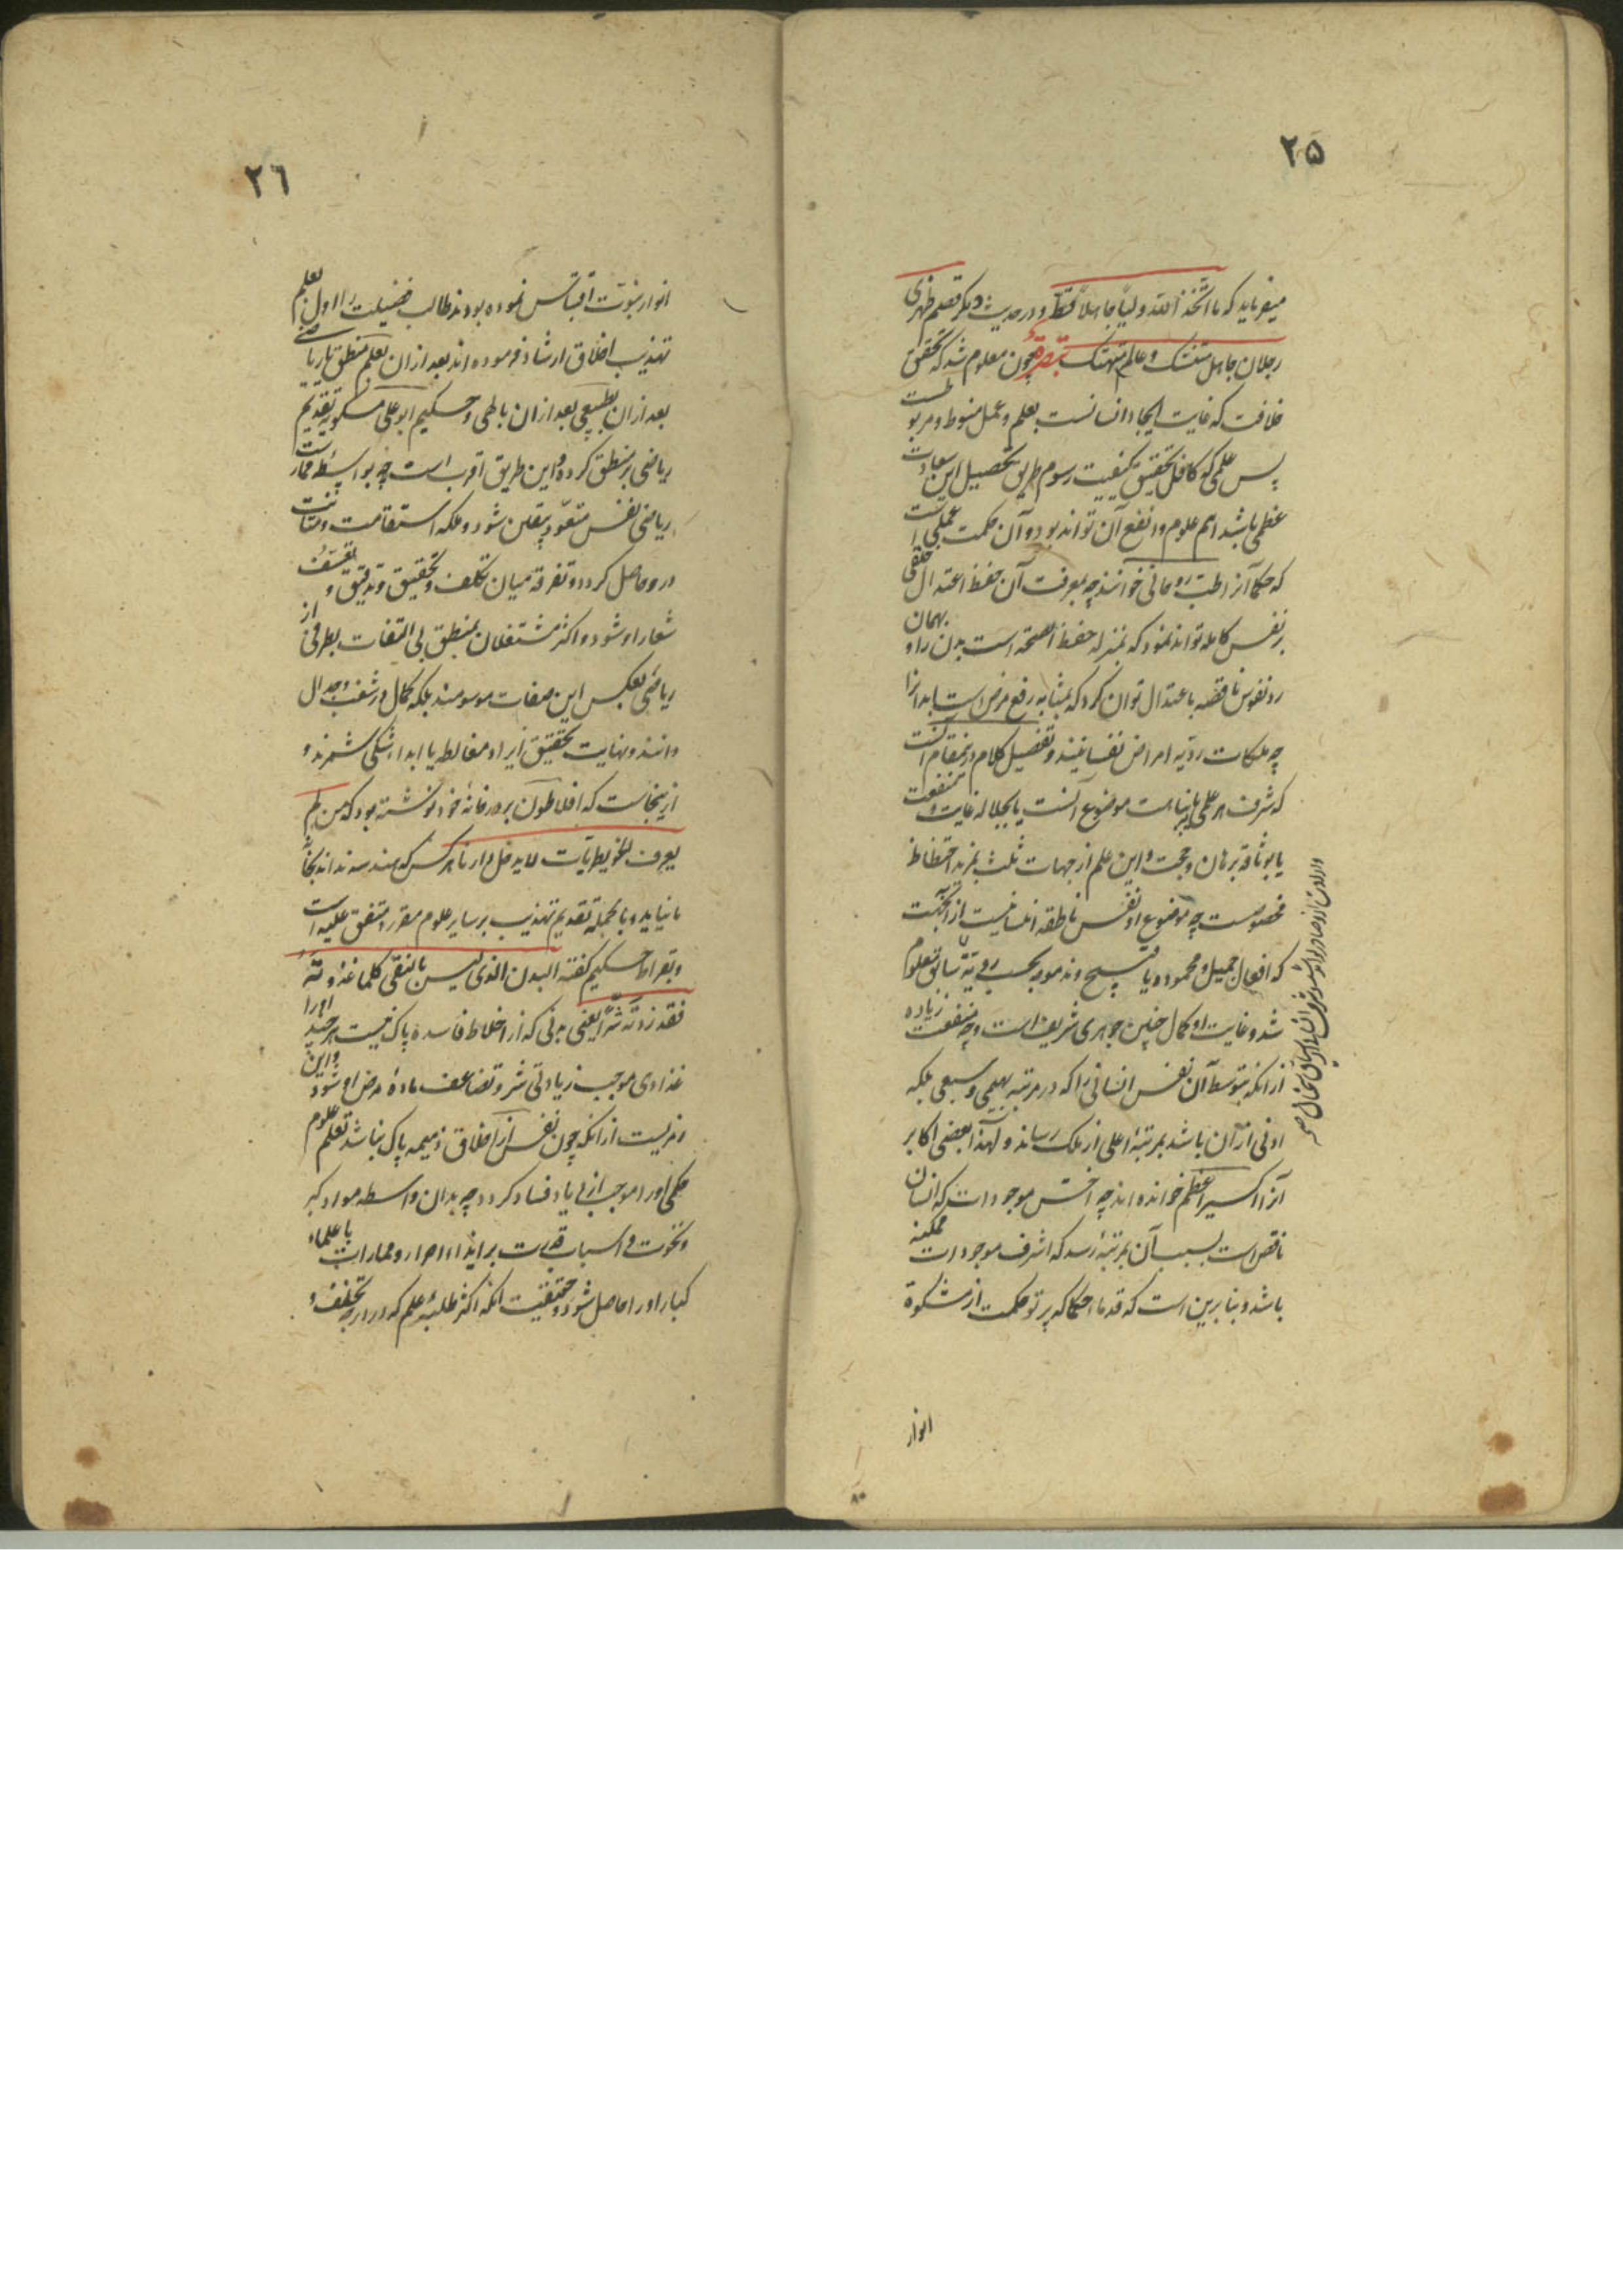 ۲۵
میفرماید که ما اتخذ الله ولیاً جاهلاً قط و در حدیث دیگر قصم ظهری
رجلان جاهل متنسک و عالم متهتک تبصره چون معلوم شد که تحقق
خلافت که غایت ایجاد انسانست بعلم و عمل منوط و مربوطست
پس علمی که کافل تحقیق کیفیت رسوم طریق تحصیل این سعادت
عظمی باشد اهم علوم و انفع آن تواند بود و آن حکمت عملی است
که حکما آنرا طب روحانی خوانند چه بمعرفت آن حفظ اعتدال خلقی
بر نفس کامله تواند نمود که بمنزله حفظ الصحة است بدن را و بهمان
رد نفوس ناقصه باعتدال توان کرد که بمثابه رفع مرض است ابدانرا
چه ملکات ردیه امراض نفسانیند و تفصیل کلام درینمقام آنست
که شرف هر علمی یا بنباهت موضوع آنست یا بجلالة غایت و منفعت
یا بوثاقة برهان و حجت و این علم از جهات ثلث بمزید اختطاظ
مخصوصست چه موضوع او نفس ناطقه انسانیست از آنجهت
که افعال جمیل و محموده یا قبیح و مذموم بحسب رویة سابق معلوم
شد و غایت او کمال چنین جوهری شریف است و چه منفعت زیاده
از انکه بتوسط آن نفس انسانی را که در مرتبه بهیمی و سبعی بلکه
ادنی از آن باشد بمرتبهٔ اعلی از ملک رساند و لهذا بعضی اکابر
آنرا اکسیر اعظم خوانده اند چه اخس موجودات که انسان
ناقص است بسبب آن بمرتبهٔ رسد که اشرف موجودات ممکنه
باشد و بنا برین است که قدماء حکما که پرتو حکمت از مشکوة
انوار
۲۶
انوار نبوت اقتباس نموده بودند طالب فضیلت را اول بعلم
تهذیب اخلاق ارشاد فرموده اند بعد ازان بعلم منطق یا ریاضی
بعد ازان بطبیعی بعد ازان بالهی و حکیم ابو علی مسکویه تقدیم
ریاضی بر منطق کرده و این طریق اقرب است چه بواسطه ممارست
ریاضی نفس متعود بیقین شود و ملکه استقامت و متانت
درو حاصل کردد و تفرقه میان تکلف و تحقیق و تدقیق و تعسف
شعار او شود و اکثر مشتغلان بمنطق بی التفات بطرفی از
ریاضی بعکس این صفات موسومند بلکه کمال در شغب و جدال
دانند و نهایت تحقیق ایراد مغالطه یا ابداء شکی شمرند و
ازینجاست که افلاطون بر در خانهٔ خود نوشته بود که من لم
یعرف للخویطریات لا یدخل دارنا هر کس که هندسه نداند بخانهٔ
ما نیاید و بالجمله تقدیم تهذیب بر سایر علوم مقرر و متفق علیه است
و بقراط حکیم کفته البدن الذی لیس بالنقی کلما غذوته
فقد زدته شرّاً یعنی بدنی که از اخلاط فاسده پاک نیست هر چند او را
غذا دهی موجب زیادتی شر و تضاعف مادهٔ مرض او شود و این
رمزیست از انکه چون نفس از اخلاق ذمیمه پاک نباشد تعلم علوم
حکمی او را موجب ازدیاد فساد کردد چه بدان واسطه مواد کبر
و نخوت و اسباب قدرت بر ایذاء احرار و ممارات با علماء
کبار او را حاصل شود و حقیقت انکه اکثر طلبهٔ علم که در درجه تخلف و